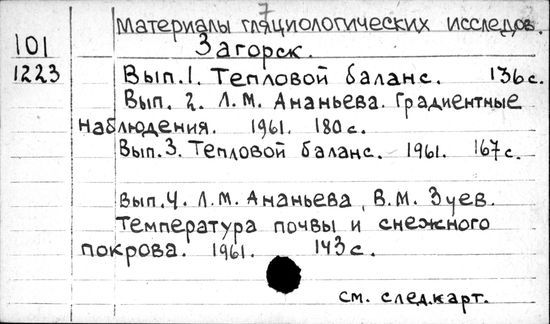 7
Материалы гляциологических исследов.
101 Загорск.
1223 Вып.1. Тепловой баланс. 136с.
Вып. 2. Л.М. Ананьева. Градиентные
наблюдения. 1961. 180с.
Вып.3. Тепловой баланс. 1961. 167с.
Вып.4. Л.М. Ананьева, В.М. Зуев.
Температура почвы и снежного
покрова. 1961. 143с.
см. след.карт.